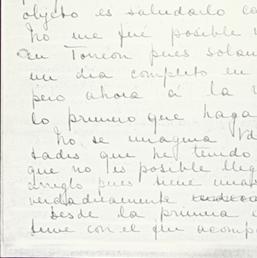 objeto es saludarlo co
No me fué posible
en Torreón pues solam
un dia completo en
pero ahora á la v
lo primero que haga
No se imagina Vd
sades que he tenido
que no es posible lleg
arreglo pues tiene unas
verdaderamente
Desde la primera
tuve con el fin acomp